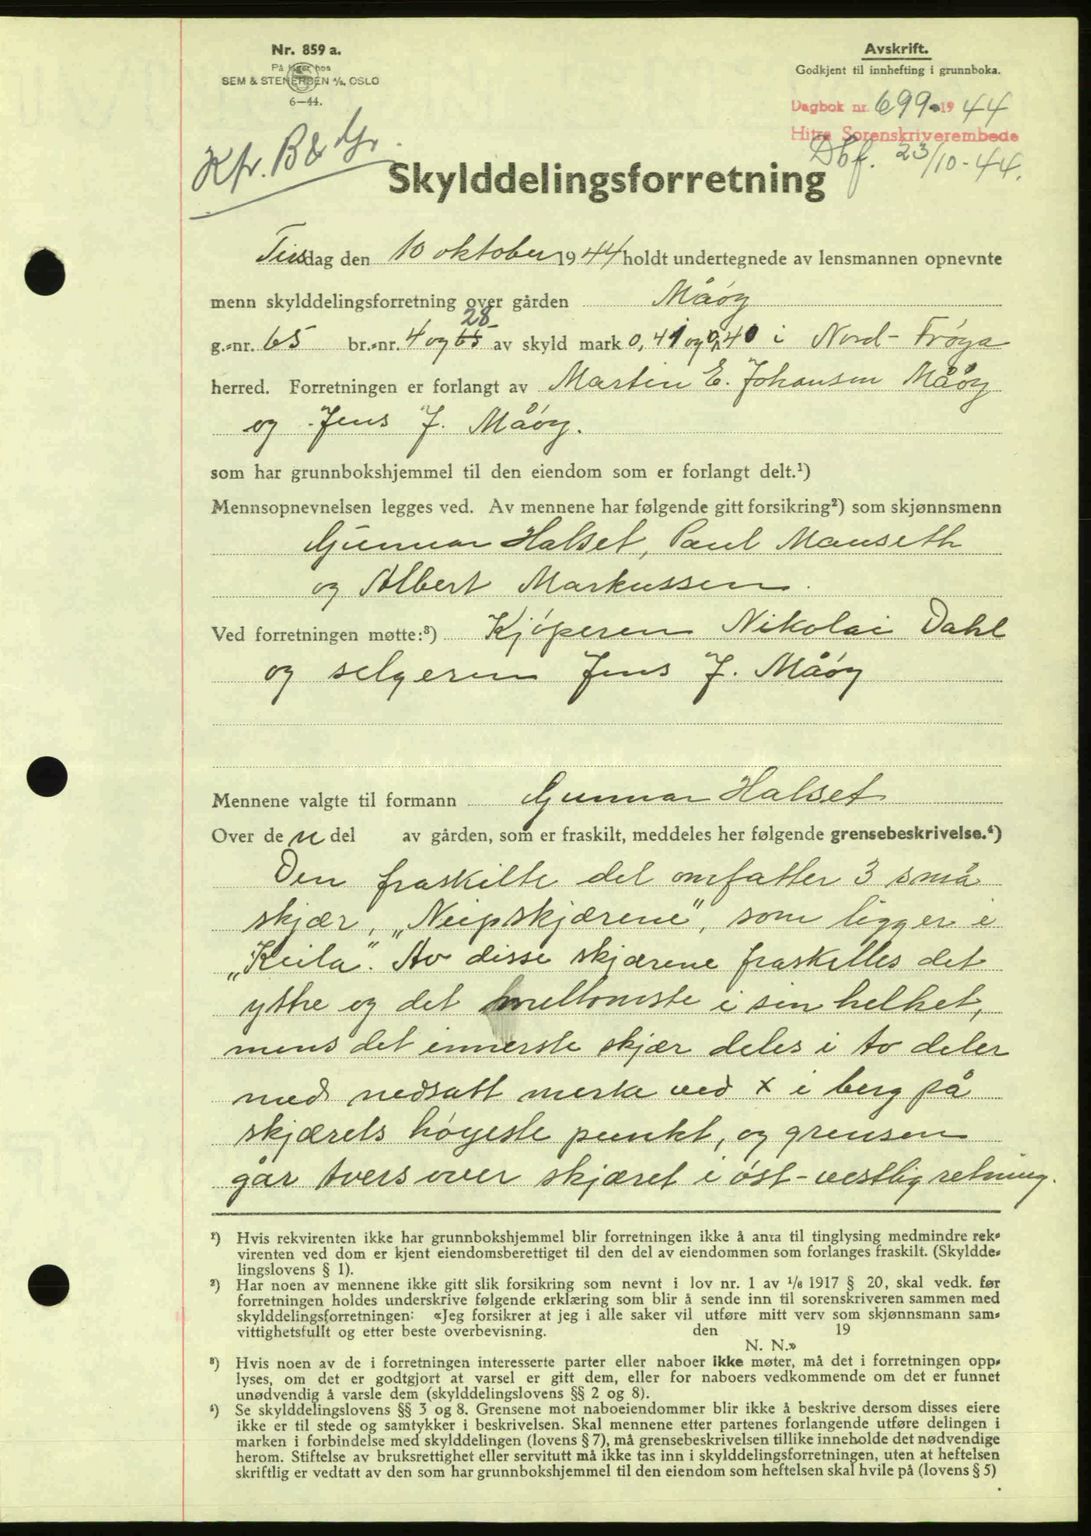 Nr. 859 a.
På lager hos
SEM & STENERSEN A/S, OSLO
6—44.
Avskrift.
Godkjent til innhefting i grunnboka.
Dagbok nr. 699 - 19 44
Hitra Sorenskriverembede
Dbf. 23/10-44.
Kfr. B & Gr.
Skylddelingsforretning
Tirsdag den 10 oktober 1944 holdt undertegnede av lensmannen opnevnte
menn skylddelingsforretning over gården Måøy
28
g.-nr. 65 br.-nr. 4 og 65 av skyld mark 0,41 og 0,40 i Nord-Frøya
herred. Forretningen er forlangt av Martin E. Johansen Måøy
og Jens J. Måøy.
som har grunnbokshjemmel til den eiendom som er forlangt delt.¹)
Mennsopnevnelsen legges ved. Av mennene har følgende gitt forsikring²) som skjønnsmenn
Gunnar Halset, Paul Mauseth
og Albert Markussen.
Ved forretningen møtte:³) Kjøperen Nikolai Dahl
og selgeren Jens J. Måøy
Mennene valgte til formann Gunnar Halset
Over den del av gården, som er fraskilt, meddeles her følgende grensebeskrivelse.⁴)
Den fraskilte del omfatter 3 små
skjær, „Neipskjærene", som ligger i
„Keila". Av disse skjærene fraskilles det
ytre og det mellomste i sin helhet,
mens det innerste skjær deles i to deler
med nedsatt merke ved x i berg på
skjærets høyeste punkt, og grensen
går tvers over skjæret i øst-vestlig retning.
¹) Hvis rekvirenten ikke har grunnbokshjemmel blir forretningen ikke å anta til tinglysing medmindre rek-
virenten ved dom er kjent eiendomsberettiget til den del av eiendommen som forlanges fraskilt. (Skyldde-
lingslovens § 1).
²) Har noen av mennene ikke gitt slik forsikring som nevnt i lov nr. 1 av 1/6 1917 § 20, skal vedk. før
forretningen holdes underskrive følgende erklæring som blir å sende inn til sorenskriveren sammen med
skylddelingsforretningen: «Jeg forsikrer at jeg i alle saker vil utføre mitt verv som skjønnsmann sam-
vittighetsfullt og etter beste overbevisning. den 19
N. N.»
³) Hvis noen av de i forretningen interesserte parter eller naboer ikke møter, må det i forretningen opp-
lyses, om det er godtgjort at varsel er gitt dem, eller for naboers vedkommende om det er funnet
unødvendig å varsle dem (skylddelingslovens §§ 2 og 8).
⁴) Se skylddelingslovens §§ 3 og 8. Grensene mot naboeiendommer blir ikke å beskrive dersom disses eiere
ikke er til stede og samtykker i beskrivelsen. Skal mennene etter partenes forlangende utføre delingen i
marken i forbindelse med skylddelingen (lovens § 7), må grensebeskrivelsen tillike inneholde det nødvendige
herom. Stiftelse av bruksrettighet eller servitutt må ikke tas inn i skylddelingsforretningen, uten at heftelsen
skriftlig er vedtatt av den som har grunnbokshjemmel til den eiendom som heftelsen skal hvile på (lovens § 5)